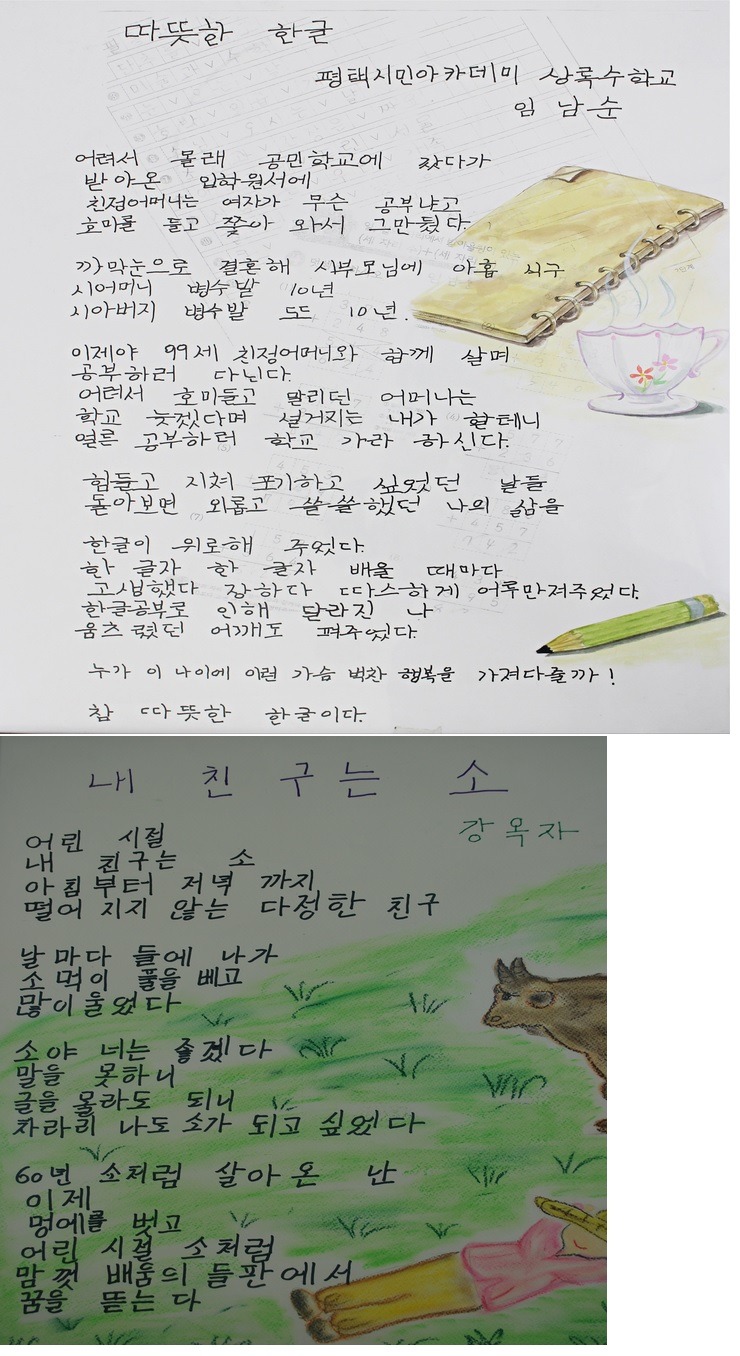 따뜻한 한글
평택시민아카데미 상록수학교
임남순
어려서 몰래 공민학교에 갔다가
받아온 입학원서에
친정어머니는 여자가 무슨 공부냐고
호미를 들고 쫓아 와서 그만뒀다.
까막눈으로 결혼해 시부모님에 아홉 식구
시어머니 병수발 10년
시아버지 병수발 또 10년.
이제야 99세 친정어머니와 함께 살며
공부하러 다닌다.
어려서 호미들고 말리던 어머니는
학교 늦겠다며 설거지는 내가 할테니
얼른 공부하러 학교 가라 하신다.
힘들고 지쳐 포기하고 싶었던 날들
돌아보면 외롭고 쓸쓸했던 나의 삶을
한글이 위로해 주었다.
한 글자 한 글자 배울 때마다
고생했다 장하다 따스하게 어루만져주었다.
한글공부로 인해 달라진 나
움츠렸던 어깨도 펴주었다.
누가 이 나이에 이런 가슴 벅찬 행복을 가져다줄까!
참 따뜻한 한글이다.
내 친구는 소
강옥자
어린 시절
내 친구는 소
아침부터 저녁 까지
떨어 지지 않는 다정한 친구
날마다 들에 나가
소 먹이 풀을 베고
많이 울었다
소야 너는 좋겠다
말을 못하니
글을 몰라도 되니
차라리 나도 소가 되고 싶었다
60년 소처럼 살아온 난
이제
멍에를 벗고
어린 시절 소처럼
맘껏 배움의 들판에서
꿈을 뜯는다